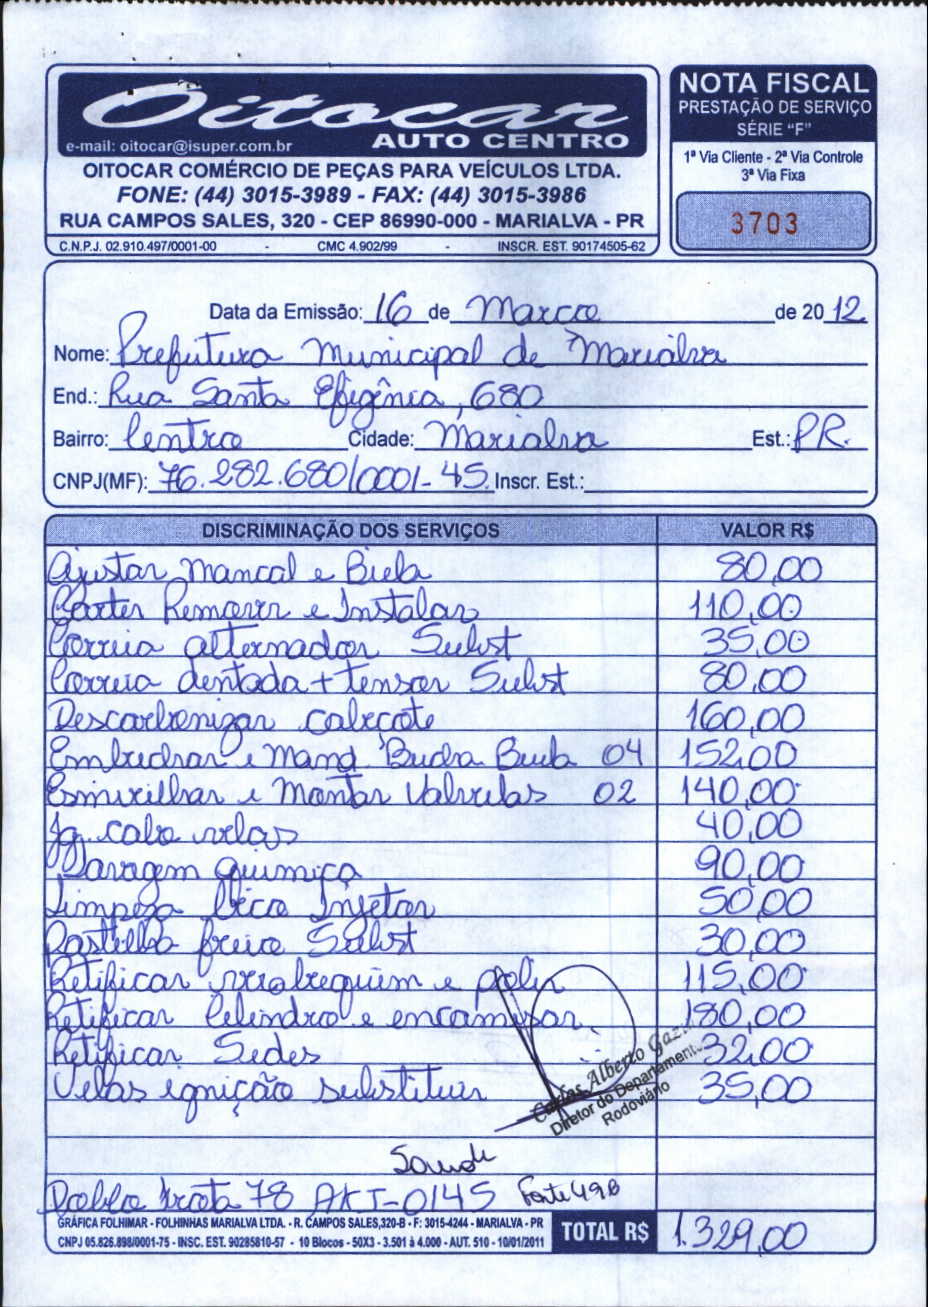 Oitocar
AUTO CENTRO
e-mail: oitocar@isuper.com.br
OITOCAR COMÉRCIO DE PEÇAS PARA VEÍCULOS LTDA.
FONE: (44) 3015-3989 - FAX: (44) 3015-3986
RUA CAMPOS SALES, 320 - CEP 86990-000 - MARIALVA - PR
C.N.P.J. 02.910.497/0001-00 - CMC 4.902/99 - INSCR. EST. 90174505-62
NOTA FISCAL
PRESTAÇÃO DE SERVIÇO
SÉRIE “F”
1ª Via Cliente - 2ª Via Controle
3ª Via Fixa
3703
Data da Emissão: 16 de Março de 2012
Nome: Prefeitura Municipal de Marialva
End.: Rua Santa Efigênia, 680
Bairro: Centro Cidade: Marialva Est.: PR.
CNPJ(MF): 76.282.680/0001-45 Inscr. Est.:
DISCRIMINAÇÃO DOS SERVIÇOS VALOR R$
Ajustar Mancal e Biela 80,00
Carter Remover e Instalar 110,00
Correia alternador Subst 35,00
Correia dentada + tensor Subst 80,00
Descarbonizar cabeçote 160,00
Embuchar e Mand. Bucha Biela 04 152,00
Esmerilhar e Montar Valvulas 02 140,00
Jg. cabo velas 40,00
Lavagem quimica 90,00
Limpeza Bico Injetor 50,00
Pastilha freio Subst 30,00
Retificar virabrequim e polir 115,00
Retificar Cilindro e encamisar. 180,00
Retificar Sedes 32,00
Velas ignição substituir 35,00
Carlos Alberto
Diretor do Departament
Rodoviário
Saude
Doblo frota 78 AKT-0145 Fonte 49B
GRÁFICA FOLHIMAR - FOLHINHAS MARIALVA LTDA. - R. CAMPOS SALES,320-B - F: 3015-4244 - MARIALVA - PR
CNPJ 05.826.898/0001-75 - INSC. EST. 90285810-57 - 10 Blocos - 50X3 - 3.501 à 4.000 - AUT. 510 - 10/01/2011
TOTAL R$ 1.329,00